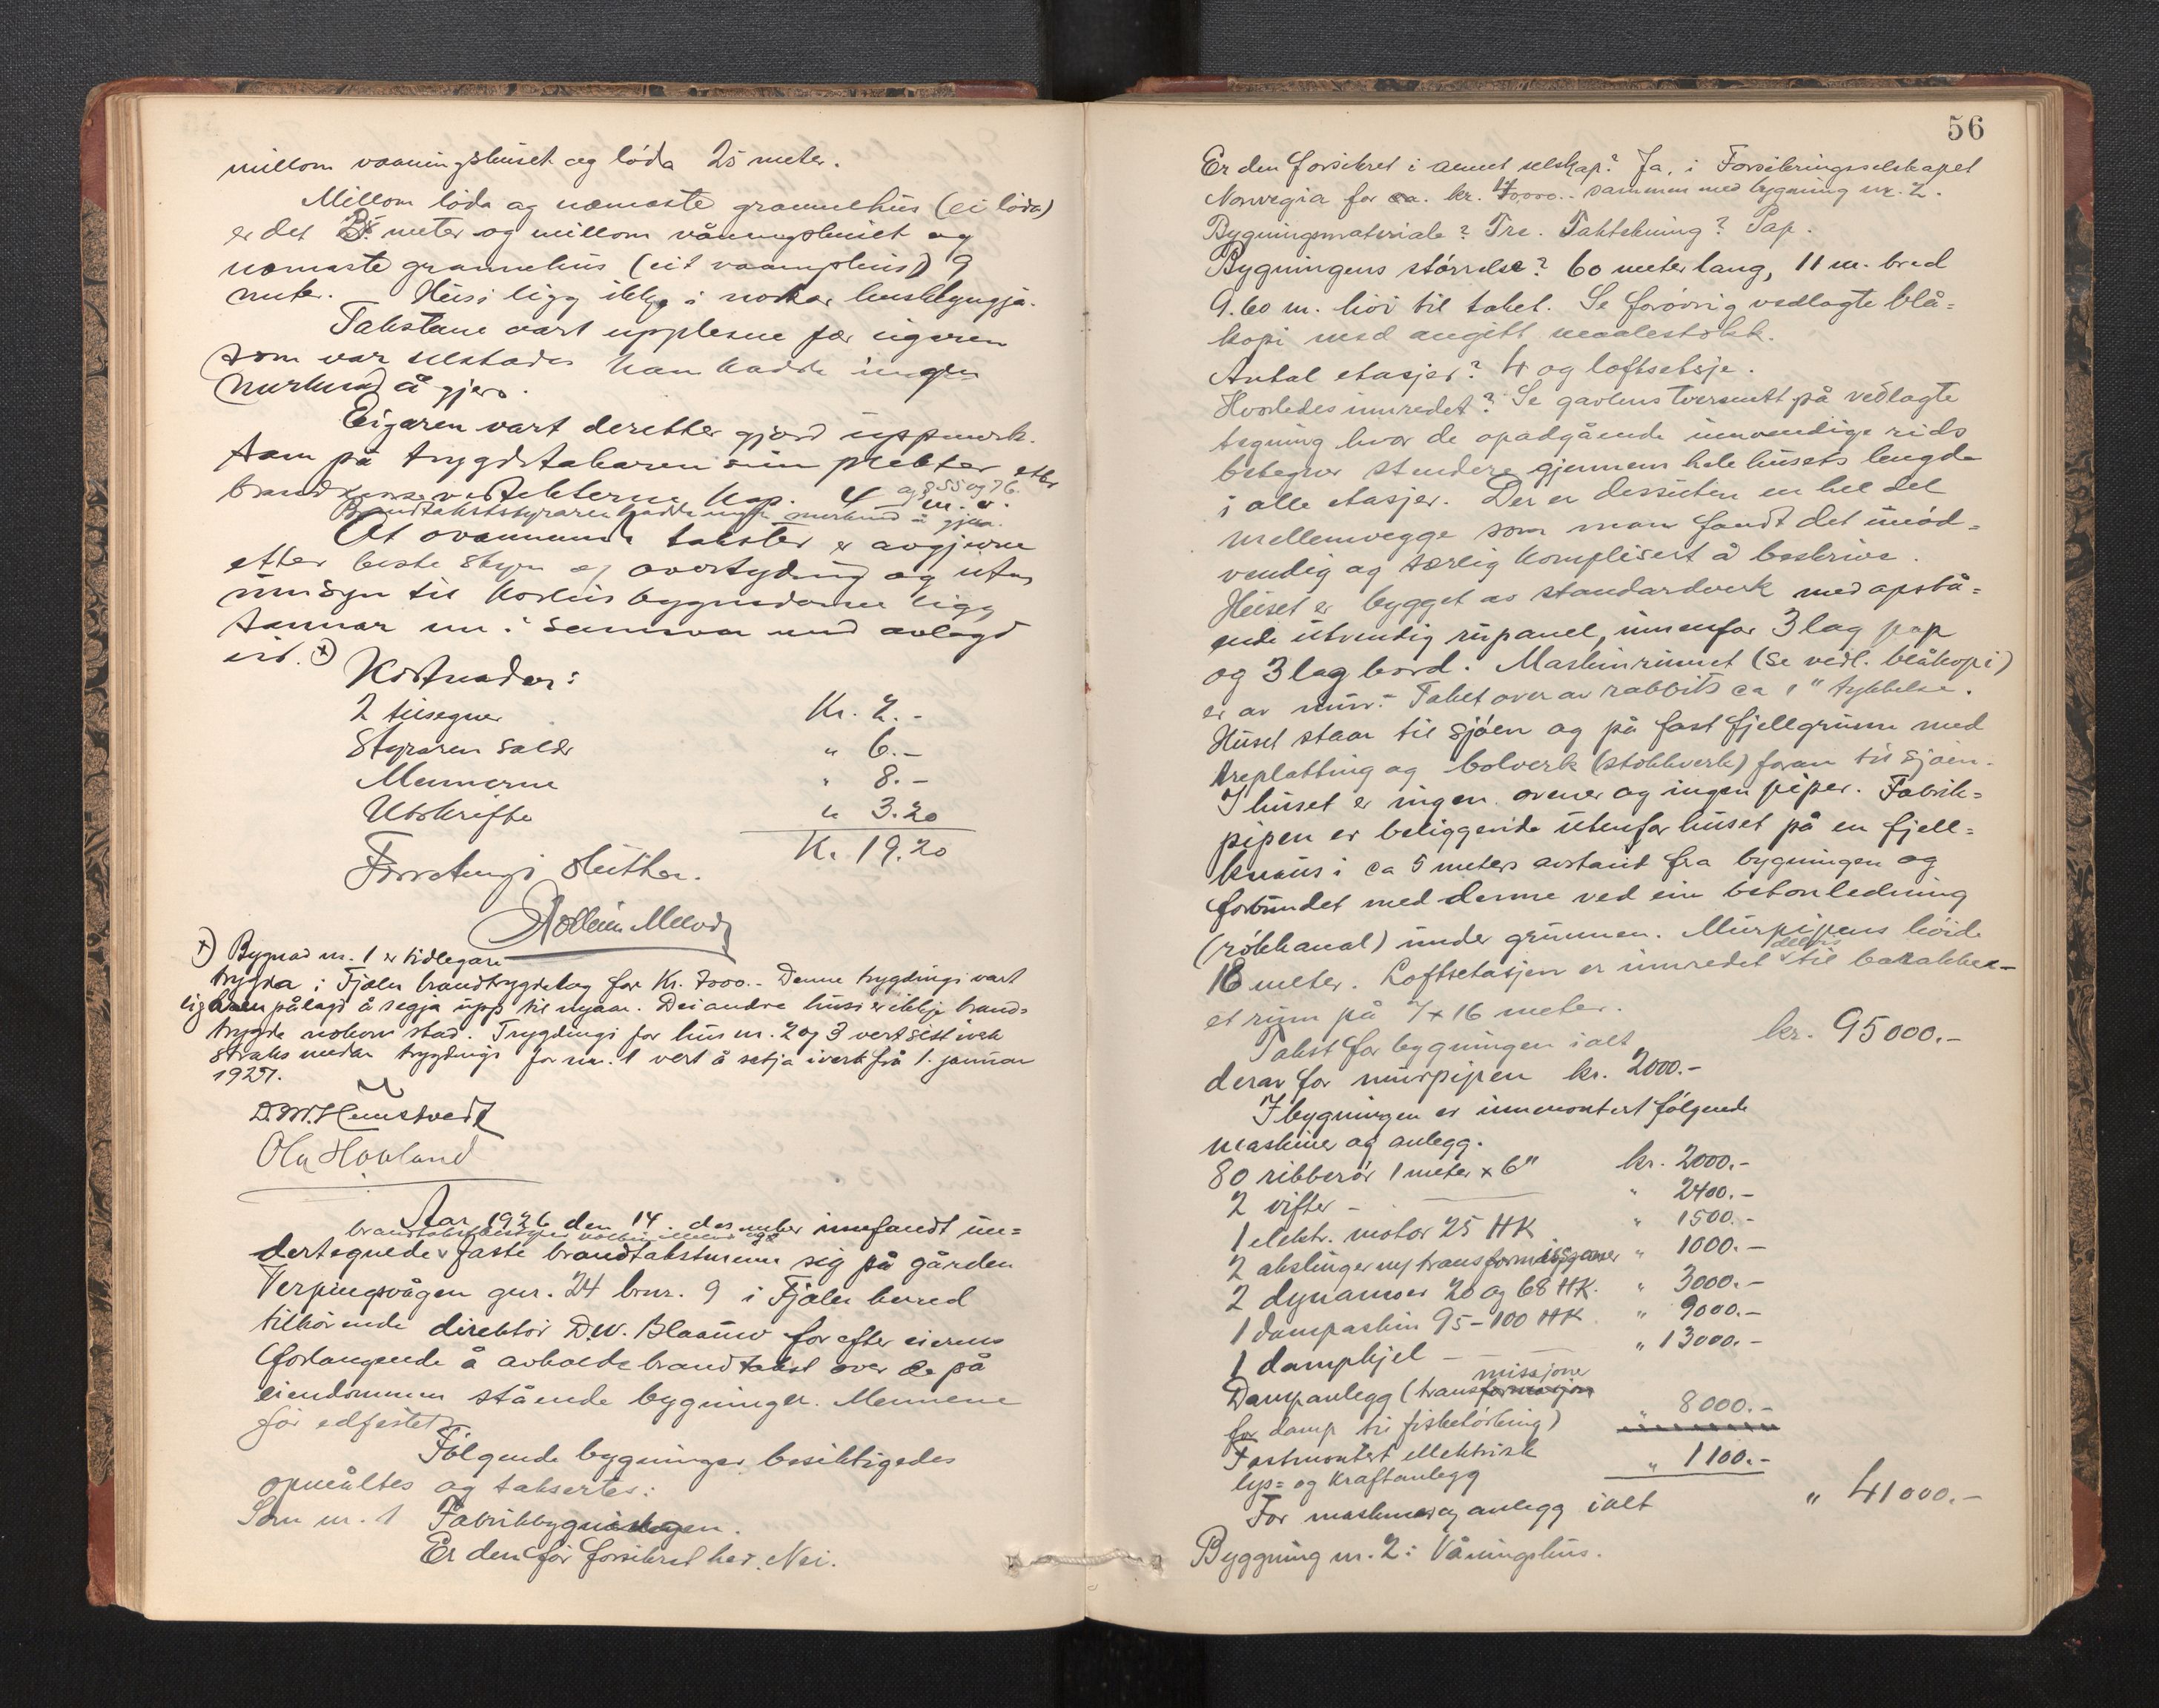 millom vaaningshuset og löda 25 meter.
Millom löda og næmaste grannehus (ei löda)
er det meter og millom våningshuset og
næmaste grannehus (eit vaaningshus) 9
meter. Husi ligg ikkje i nokor husklyngja.
Takstane vart upplesne for eigaren
som var tilstades han hadde ingen
merknad å gjera.
Eigaren vart deretter gjord uppmerk-
sam på trygdtakaren sin plikter etter
Kap. 4 og § 55 og 76 m. v.
Brandtakststyraren hadde ingen merknad å gjera.
At ovannemnde takster er avgjevne
etter beste skjyn og overtyding og utan
umsyn til korleis bygnadarne ligg
saman me i samsvar med avlagd
eid. +)
Kostnader:
2 tilsegner Kr. 2.-
Styraren Salær " 6.-
Mennerne " 8.-
Utskrifter " 3.20
Kr. 19.20
Forretningi slutta.
+) Bygnad nr. 1 er tidlegare
trygda i Fjaler brandtrygdelag for Kr. 7000.- Denne trygdingi vart
eigaren pålagd å segja upp til nyaar. Dei andre husi er ikkje brand-
trygda nokon stad. Trygdingi for hus nr. 2 og 3 vert sett iverk
straks medan trygdingi for nr. 1 vert å setja iverk frå 1. januar
1927.
Ola Hovland
Aar 1926 den 14. desember innfandt un-
dertegnede faste brandtakstmenn sig på gården
Verpingsvågen gnr. 24 bnr. 9 i Fjaler herred
tilhörende direktör D.W. Blaauw for efter eierens
forlangende å avholde brandtakst over de på
eiendommen stående bygninger. Mennene
för edfestet.
Fölgende bygninger besiktigedes
opmåltes og taksertes:
Som nr. 1 Fabrikbygningen.
Er den för forsikret her. Nei.
56
Er den forsikret i annet selskap? Ja, i Forsikringsselskapet
Norvegia for ca. kr. sammen med bygning nr. 2.
Bygningsmateriale? Tre. Taktekning? Pap.
Bygningens störrelse? 60 meter lang, 11 m. bred
9.60 m. höi til taket. Se forövrig vedlagte blå-
kopi med angitt maalestokk.
Antal etasjer? 4 og loftsetasje.
Hvorledes innredet? Se gavlens tversnitt på vedlagte
tegning hvor de opadgående innvendige rids
betegner stendere gjennem hele husets lengde
i alle etasjer. Der er dessuten en hel del
mellemvegge som man fandt det unöd-
vendig og særlig komplisert å beskrive.
Huset er bygget av standardverk med opstå-
ende utvendig rupanel, innenfor 3 lag pap
og 3 lag bord. Maskinrummet (se vedl. blåkopi)
er av mur. Taket over av rabbits ca 1" tykkelse.
Huset staar til sjöen og på fast fjellgrunn med
treplatting og bolverk (stokkverk) foran til sjöen.
I huset er ingen ovner og ingen piper. Fabrik-
pipen er beliggende utenfor huset på en fjell-
knaus i ca 5 meters avstand fra bygningen og
forbundet med denne ved ein betonledning
(rökkanal) under grunnen. Murpipens höide
16 meter. Loftsetasjen er innredet delvis til barakker-
et rum på 7 x 16 meter.
Takst for bygningen ialt kr. 95000.-
derav for murpipen kr. 2000.-
I bygningen er innmontert fölgende
maskiner og anlegg.
80 ribberör 1 meter x 6" kr. 2000.-
2 vifter - " 2400.-
1 elektr. motor 25 HK " 1500.-
2 akslinger m/ " 1000.-
2 dynamoer 20 og 68 HK. " 3000.-
1 dampaskin 95-100 HK " 9000.-
1 dampkjel - " 13000.-
Dampanlegg (transmissjoner
for damp til fisketörking) " 8000.-
Fastmontert ellektrisk
lys- og kraftanlegg " 1100.-
For maskiner og anlegg ialt " 41000.-
Byggning nr. 2: Våningshus.